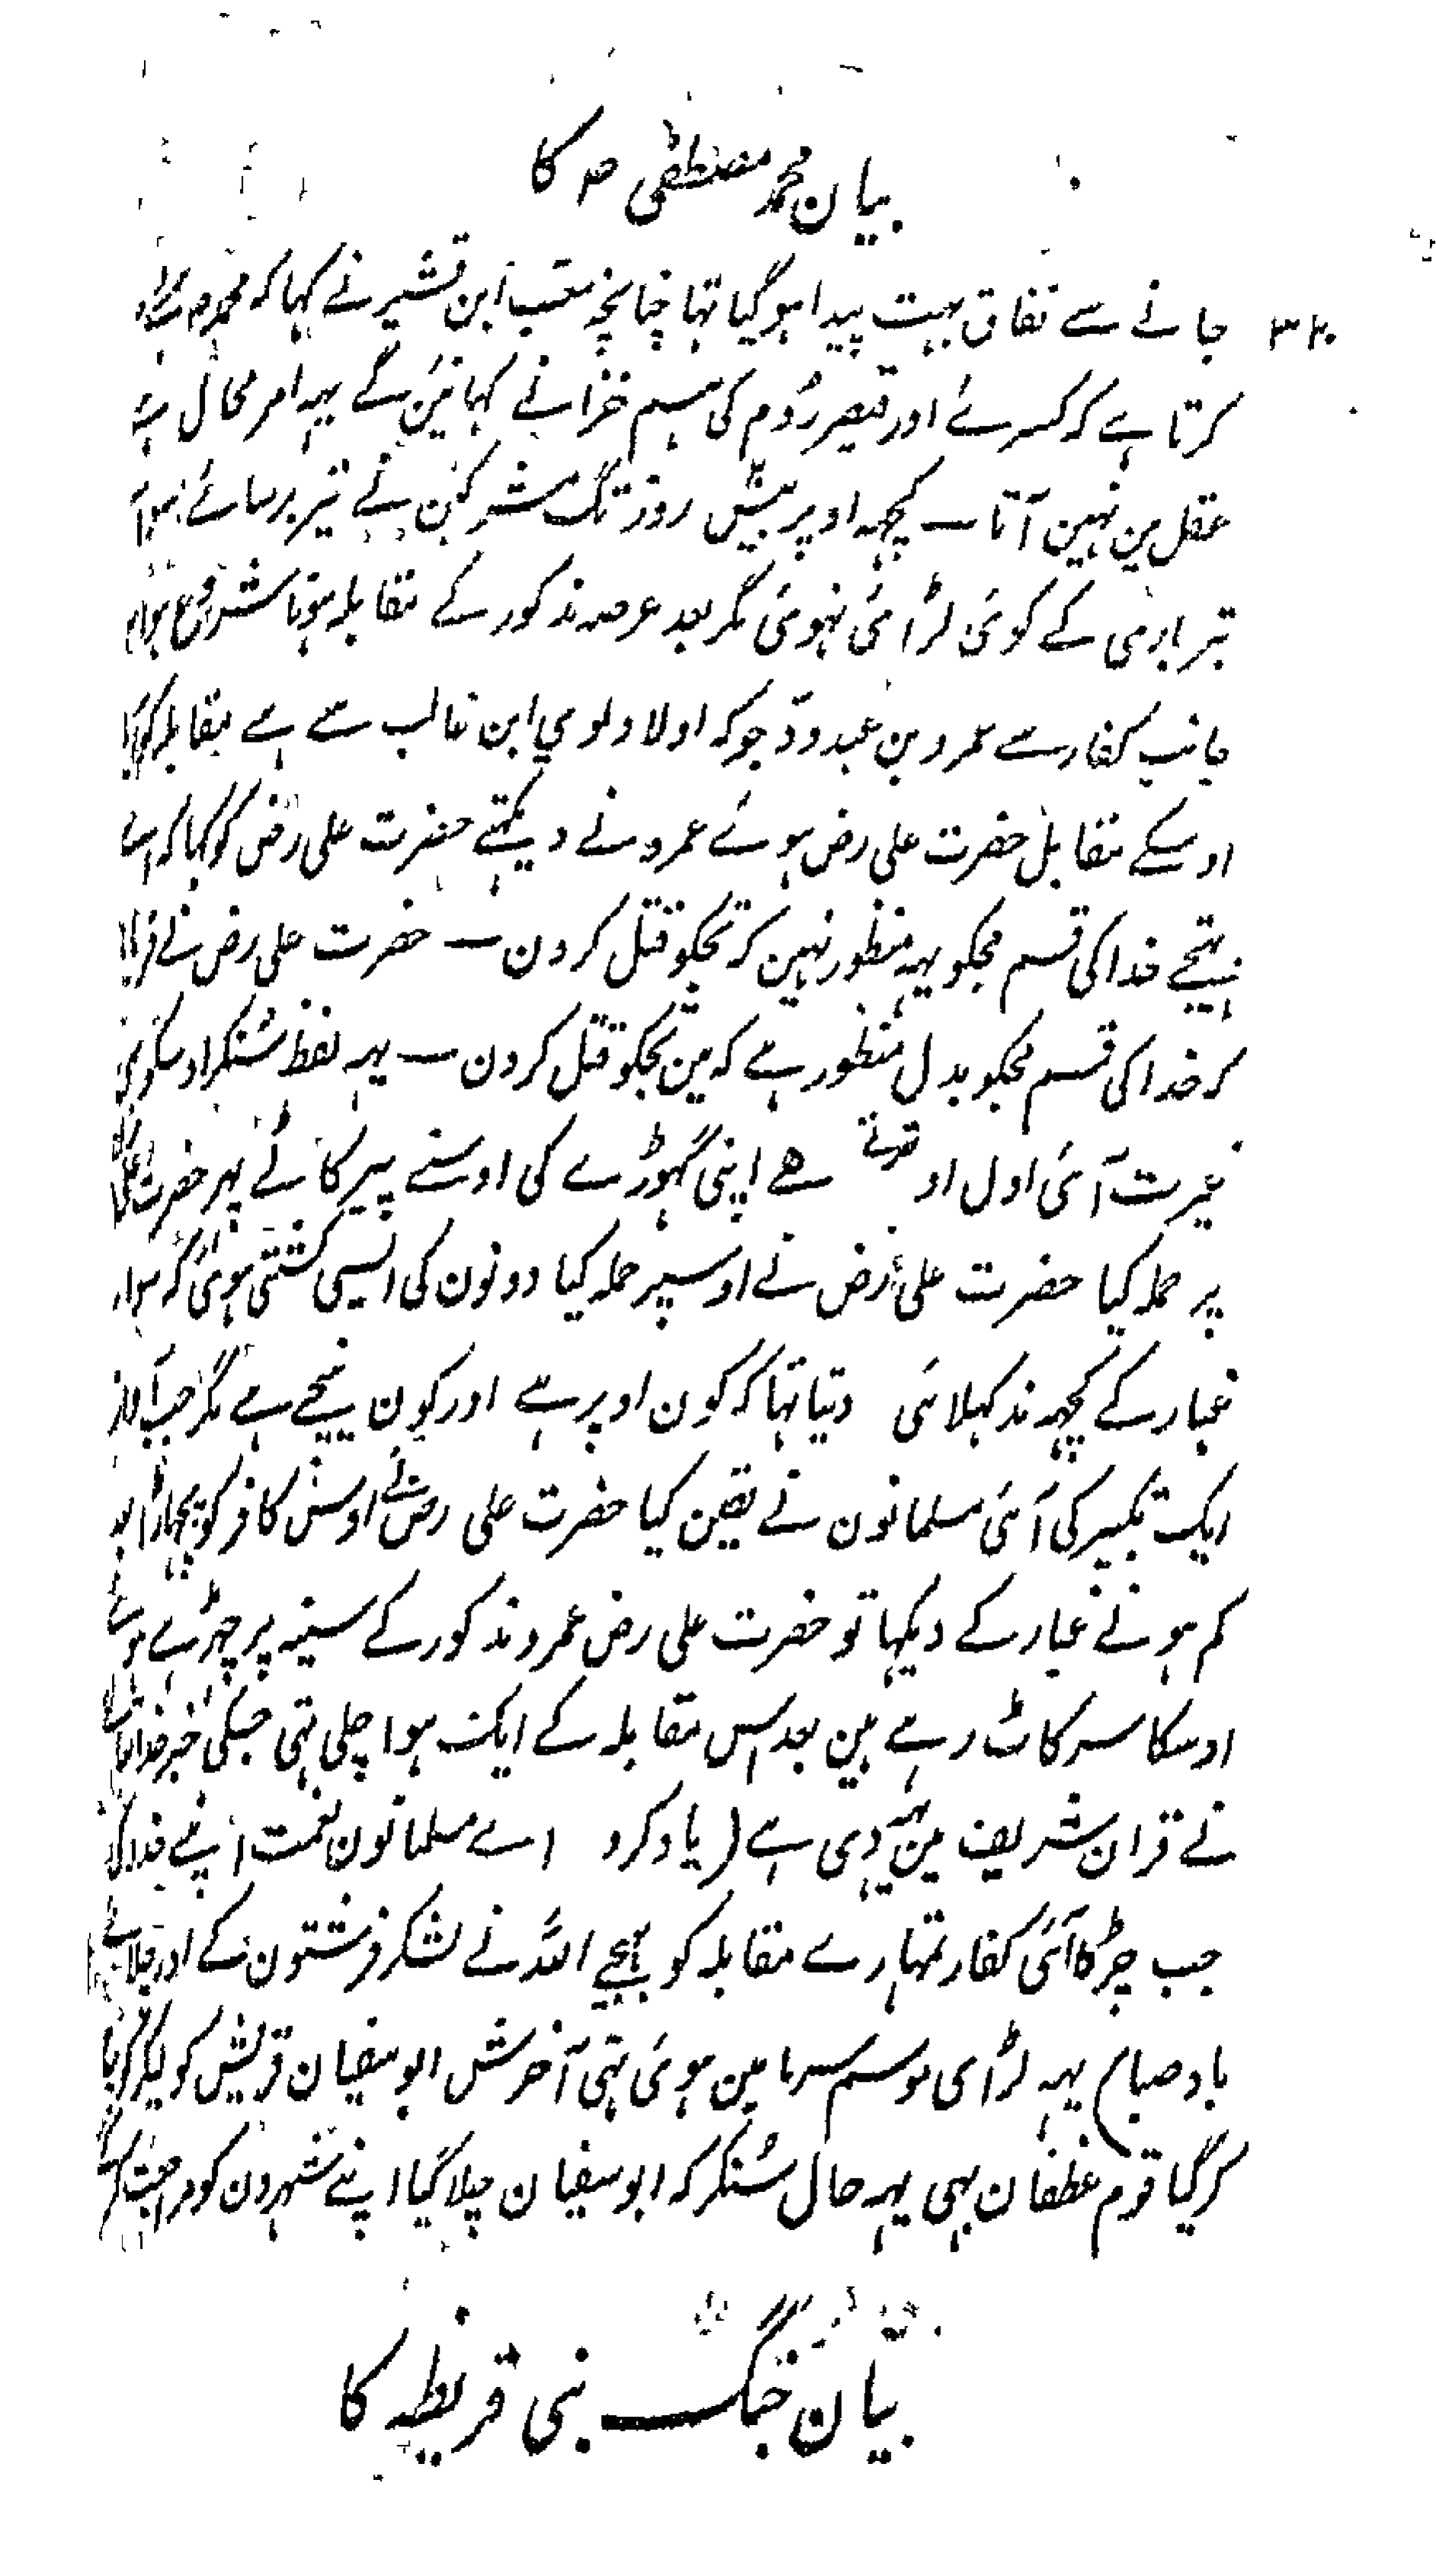 بیان محمد مصطفی ص کا
۳۲۰ جانے سے نفاق بہت پیدا ہو گیا تہا چنانچہ معتب ابن قشیر نے کہا کہ محمد ص
کرتا ہے کہ کسرے اور قیصر روم کی ہم خزانے کہائین گے یہہ امر محال ہے
عقل مین نہین آتا ـ کچہہ اوپر بیس روز تک مشرکین نے تیر برسائے سوائے
تیر باری کے کوئی لڑائی نہوئی مگر بعد عرصہ مذکور کے مقابلہ ہونا شروع ہوا
جانب کفار سے عمرو بن عبدود جو کہ اولاد لوی ابن غالب سے ہے مقابلہ کو
اوسکے مقابل حضرت علی رض ہوئے عمرو نے دیکہتے حضرت علی رض کو کہا کہ اے
بہتیجے خدا کی قسم مجکو یہہ منظور نہین کہ تجکو قتل کرون ـ حضرت علی رض نے فرمایا
کہ خدا کی قسم مجکو بدل منظور ہے کہ مین تجکو قتل کرون ـ یہہ لفظ سنکر اوسکو
غیرت آئی اول اوترتے ہے اپنی گہوڑے کی اوسنے پیر کاٹے پہر حضرت علی
پر حملہ کیا حضرت علی رض نے اوسپر حملہ کیا دونون کی ایسی کشتی ہوئی کہ
غبار کے کچہہ ندکہلائی دیتا تہا کہ کون اوپر ہے اور کون نیچے ہے مگر جب آواز
ایک تکبیر کی آئی مسلمانون نے یقین کیا حضرت علی رض نے اوس کافر کو پچہاڑا بعد
کم ہونے غبار کے دیکہا تو حضرت علی رض عمرو مذکور کے سینہ پر چڑہے ہوئے
اوسکا سر کاٹ رہے ہین بعد اس مقابلہ کے ایک ہوا چلی تہی جسکی خبر خدا تعالے
نے قران شریف مین یہہ دی ہے (یاد کرو اے مسلمانون نعمت اپنے خدا کی
جب چڑکا آئی کفار تمہارے مقابلہ کو بہیجے اللہ نے لشکر فرشتون کے اور چلائے
باد صبا) یہہ لڑائی موسم سرما مین ہوئی تہی آخرش ابوسفیان قریش کو لیکر
کر گیا قوم غطفان بہی یہہ حال سنکر کہ ابوسفیان چلا گیا اپنے شہرون کو مراجعت
بیان جنگ بنی قریظہ کا